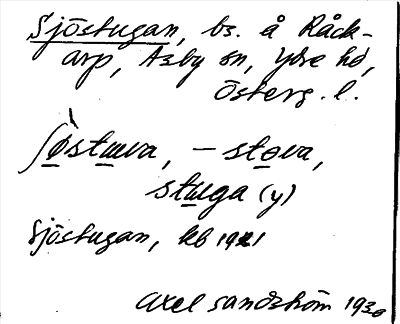 Sjöstugan, bs. å Råck-
arp, Asby sn, Ydre hd,
Österg. l.
ʃø̀stɯva, – støva,
stɯga (y)
Sjöstugan, kb 1921
Axel Sandström 1930